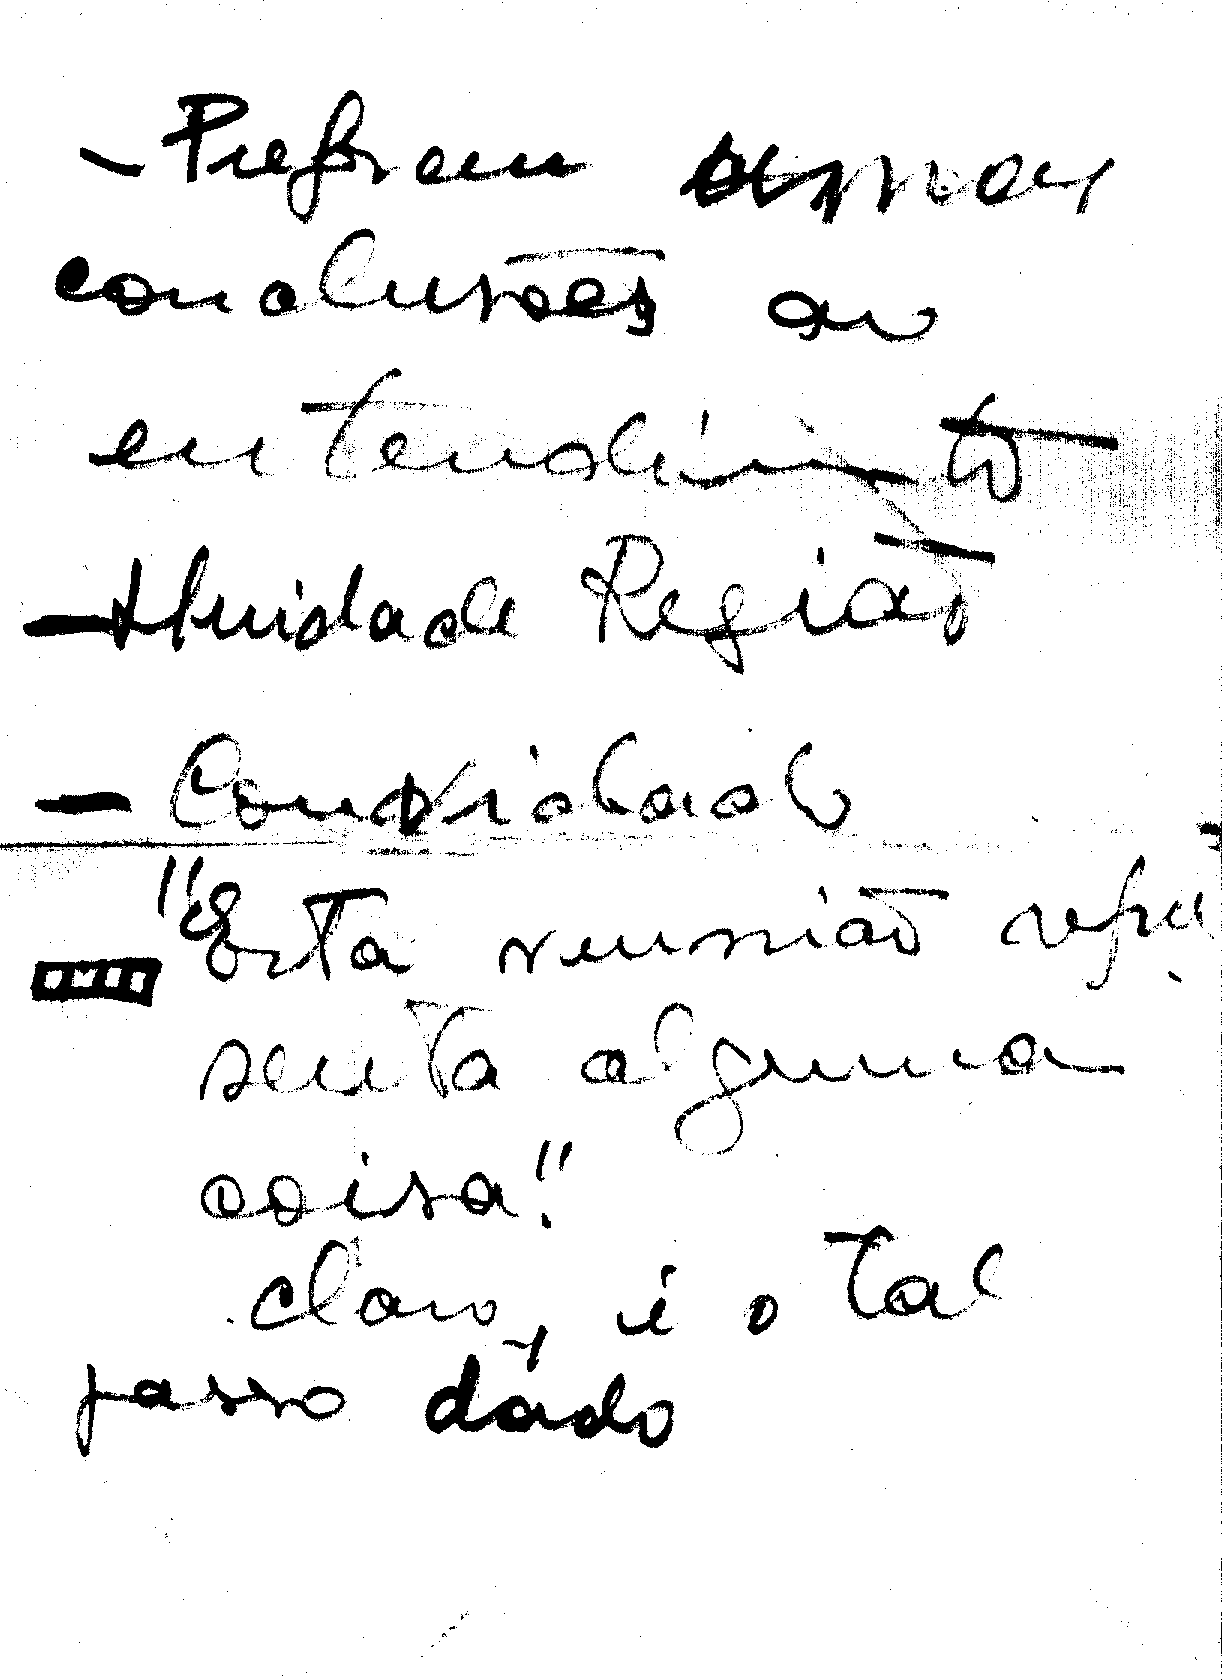 - Preferem
conclusões ao
entendimento
- Unidade Região
- Convidado
"Esta reunião repre
senta alguma
coisa!"
claro, é o tal
passo dado